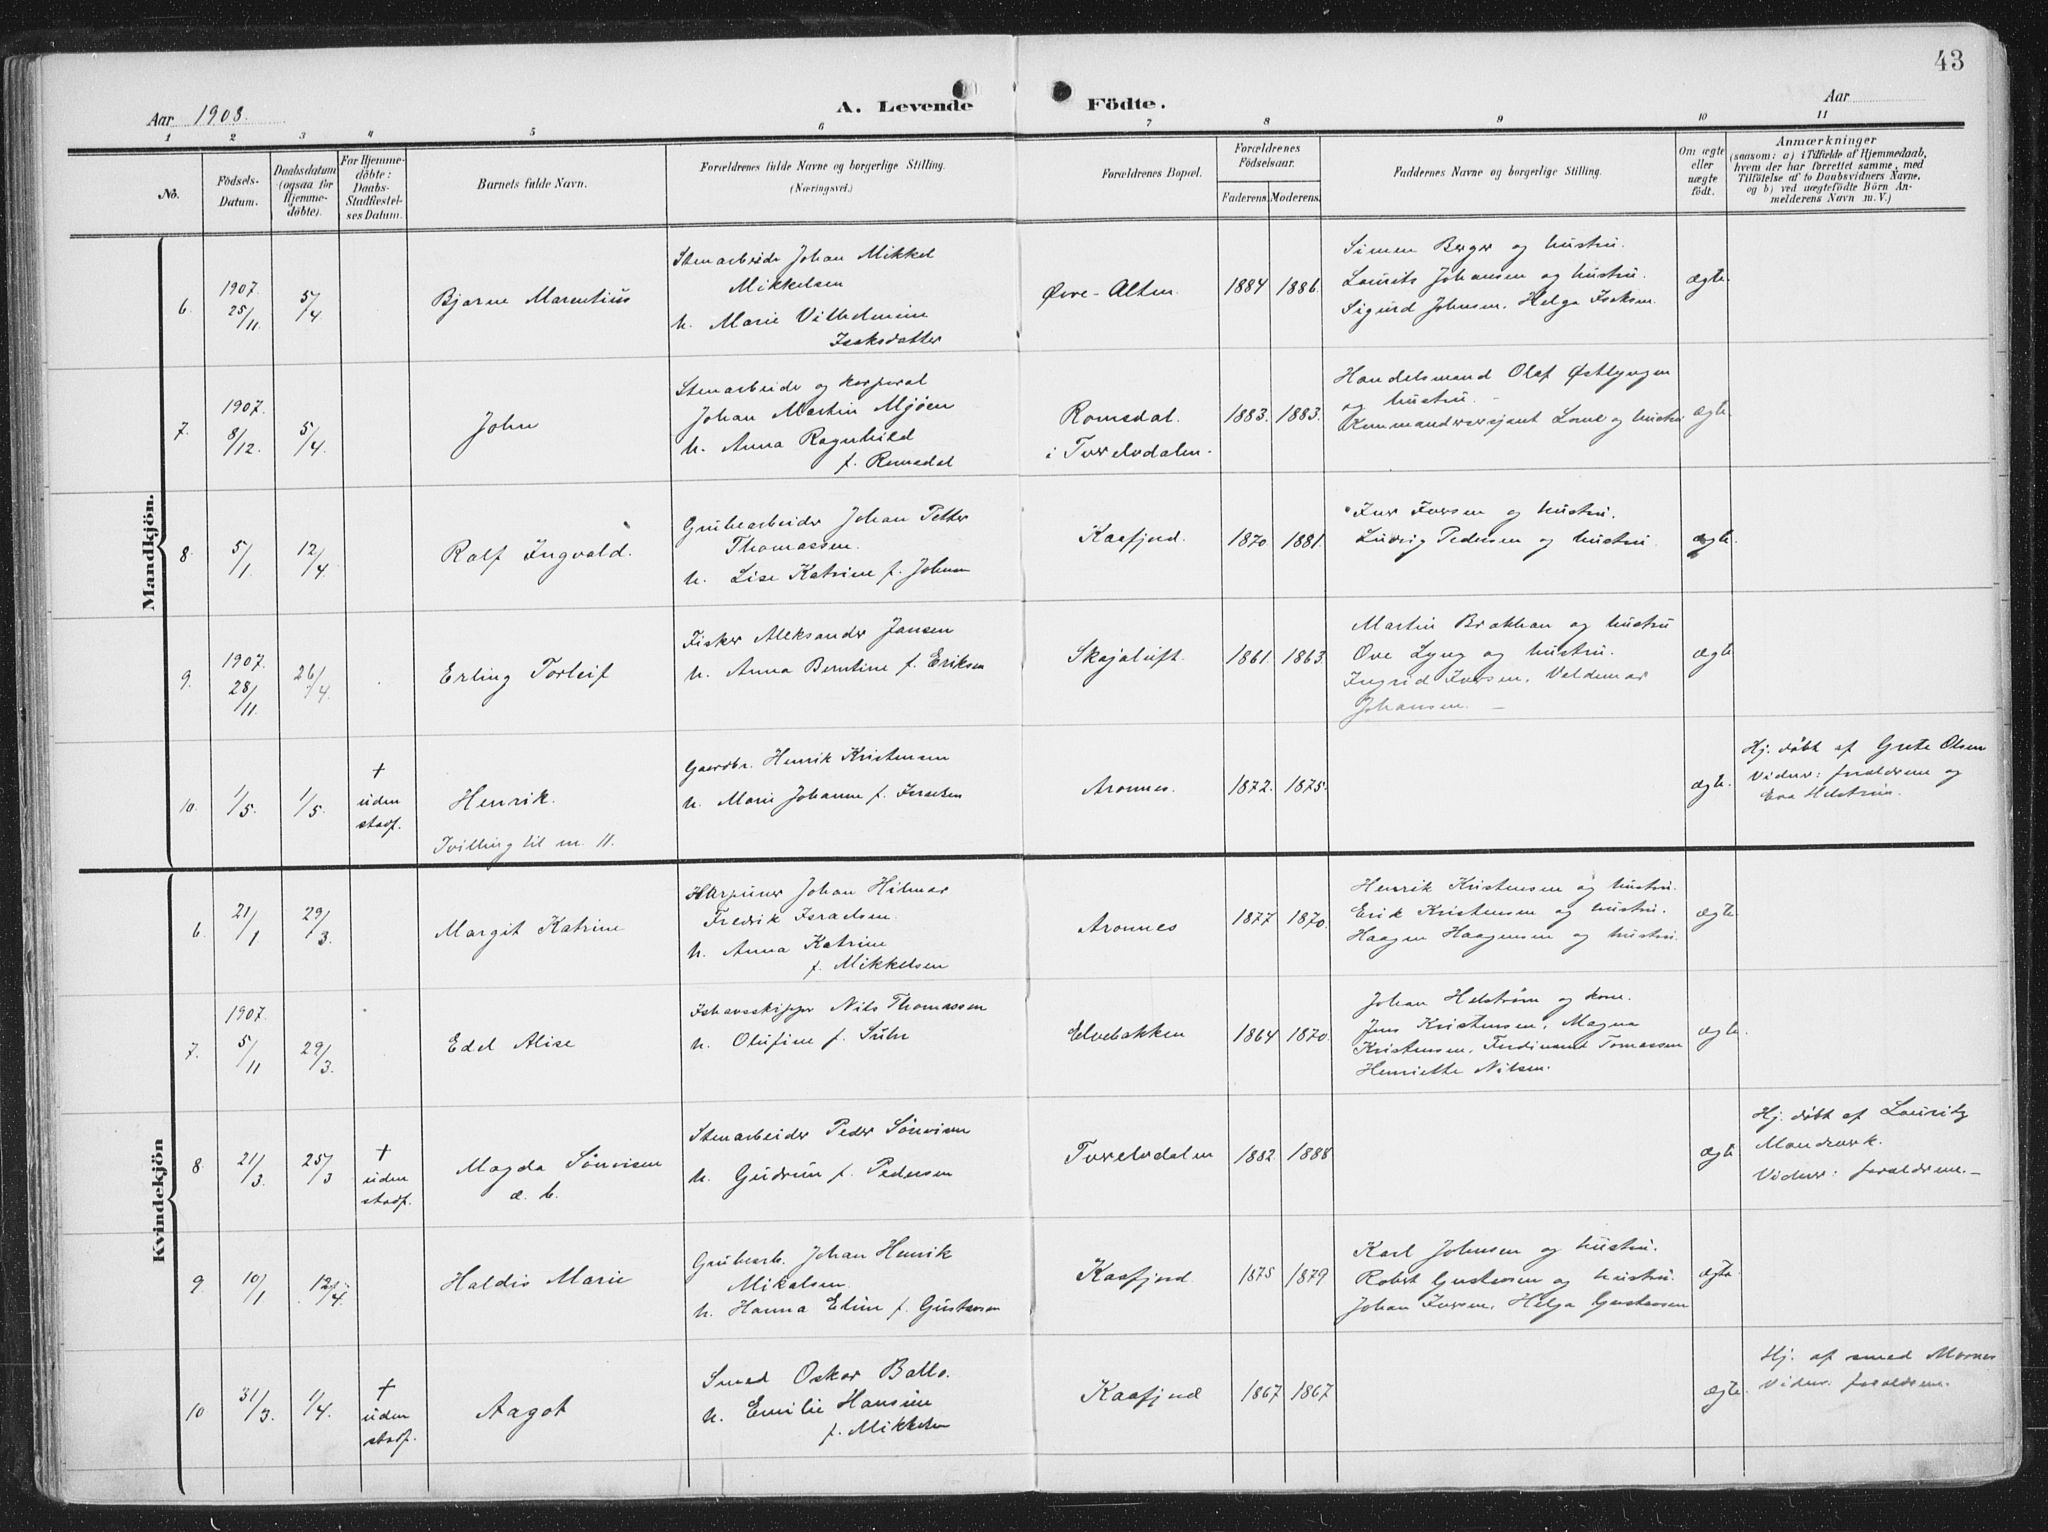 43
Aar 1908.
A. Levende Födte.
Aar
1 2 3 4 5 6 7 8 9 10 11
No.
Födsels-Datum.
Daabsdatum (ogsaa for Hjemmedöbte).
For Hjemmedöbte: Daabs-Stadfestelses Datum.
Barnets fulde Navn.
Forældrenes fulde Navne og borgerlige Stilling. (Næringsvei.)
Forældrenes Bopæl.
Forældrenes Födselsaar.
Faderens. Moderens.
Faddernes Navne og borgerlige Stilling.
Om ægte eller uægte födt.
Anmærkninger
(saasom: a) i Tilfælde af Hjemmedaab,
hvem der har forrettet samme, med
Tilföielse af to Daabsvidners Navne,
og b) ved uægtefödte Börn An-
melderens Navn m. V.)
Mandkjön.
6.
1907.
25/11.
5/4
Bjarne Marentius
Stenarbeide Johan Mikkel
Mikkelsen
h. Marie Vilhelmine
Isaksdatter
Øvre-Alten
1884 1886.
Simen Berger og hustru.
Laurits Johansen og hustru.
Sigurd Johnsen. Helga Isaksen.
ægte.
7.
1907.
8/12.
5/4.
John
Stenarbeide og korporal
Johan Martin Mjøen
h. Anna Ragnhild
f. Romsdal
Romsdal.
i Tverelvdalen.
1883. 1883.
Handelsmand Olaf Østlyngen
og hustru. -
Kommandersersjant Lone og hustru
ægte.
8.
5/1
12/4.
Ralf Ingvald.
Grubearbeider Johan Petter
Thomassen.
h. Lise Katrine f. Johnsen
Kaafjord.
1870. 1881.
Ivar Iversen og hustru.
Ludvig Pedersen og hustru.
ægte.
9.
1907.
28/11.
26/4.
Erling Torleif
Fisker Aleksander Jansen
h. Anna Berntine f. Eriksen
Skajaluft.
1861. 1863.
Martin Brækhan og hustru
Ove Lyng og hustru.
Ingrid Iversen. Valdemar
Johansen. -
ægte
10.
1/5.
1/5.
+
uden
stadf.
Henrik.
Tvilling til nr. 11.
Gaardbr. Henrik Kristensen
h. Marie Johanne f. Israelsen
Aronnes.
1872. 1875.
ægte.
Hj. døbt af Grete Olsen
Vidner: forældrene og
Eva Helstrøm.
Kvindekjön
6.
21/1
29/3.
Margit Katrine
Harpuner Johan Hilmar
Fredrik Israelsen.
h. Anna Katrine
f. Mikkelsen
Aronnes
1877 1870.
Henrik Kristensen og hustru.
Erik Kristensen og hustru.
Haagen Haagensen og hustru.
ægte.
7.
1907.
5/11
29/3.
Edel Alise
Ishavsskipper Nils Thomassen
h. Olufine f. Suhr
Elvebakken
1864 1870.
Johan Helstrøm og kone.
Jens Kristensen. Magna
Kristensen. Ferdinand Tomassen
Henriette Nilsen.
ægte.
8.
21/3.
25/3
+
uden
stadf.
Magda Sønvisen
d. b.
Stenarbeider Peder Sønvisen
h. Gudrun f. Pedersen
Tverelvdalen
1882. 1888.
ægte
Hj. døbt af Lauritz
Mandrærk.
Vidner: forældrene. -
9
10/1
12/4.
Haldis Marie
Grubearb. Johan Henrik
Mikalsen.
h. Hanna Eline f. Gustavsen
Kaafjord.
1875 1879
Karl Johnsen og hustru.
Robert Gustavsen og hustru.
Johan Iversen. Helga Gustavsen
ægte.
10
31/3.
1/4.
+
uden
stadf.
Aagot
Smed Oskar Ballo.
h. Emilie Hansine
f. Mikkelsen
Kaafjord
1867 1867
ægte.
Hj. af smed Mornes
Vidner. forældrene.